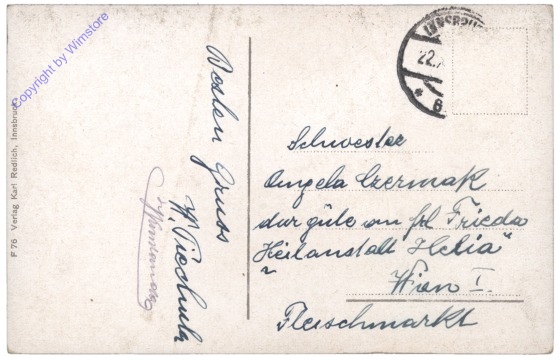 Copyright by Wimstore
F 76 Verlag Karl Redlich, Innsbruck
Besten Gruss
INNSBRUCK
22.
6
Schwester
Angela Czermak
dur güte an frl Frieda
Heilanstalt Helia"
Wien I.
Fleischmarkt